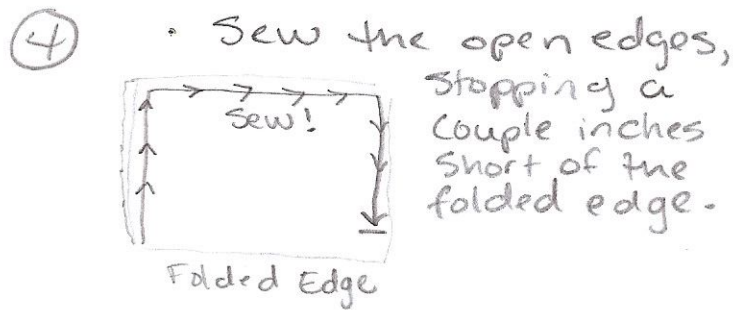 4
• Sew the open edges,
stopping a
couple inches
short of the
folded edge.
Sew!
Folded Edge